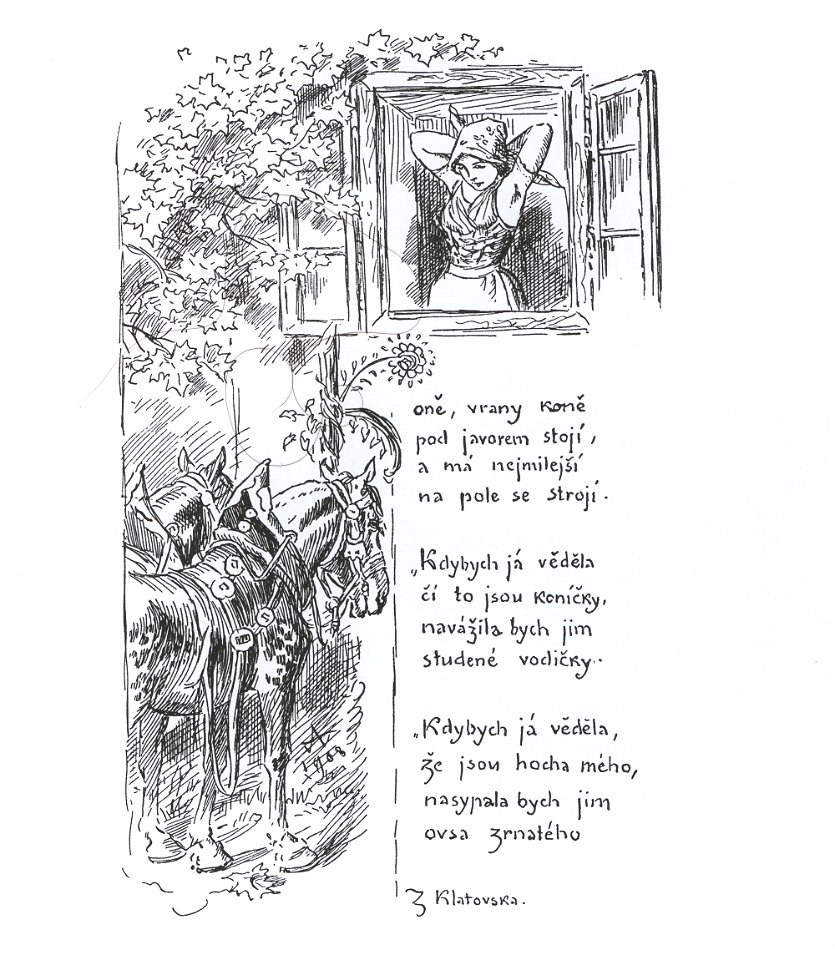 Koně, vrany koně
pod javorem stojí,
a má nejmilejší
na pole se strojí.
„Kdybych já věděla
čí to jsou koníčky,
navážila bych jim
studené vodičky.
„Kdybych já věděla,
že jsou hocha mého,
nasypala bych jim
ovsa zrnatého
Z Klatovska.
1908